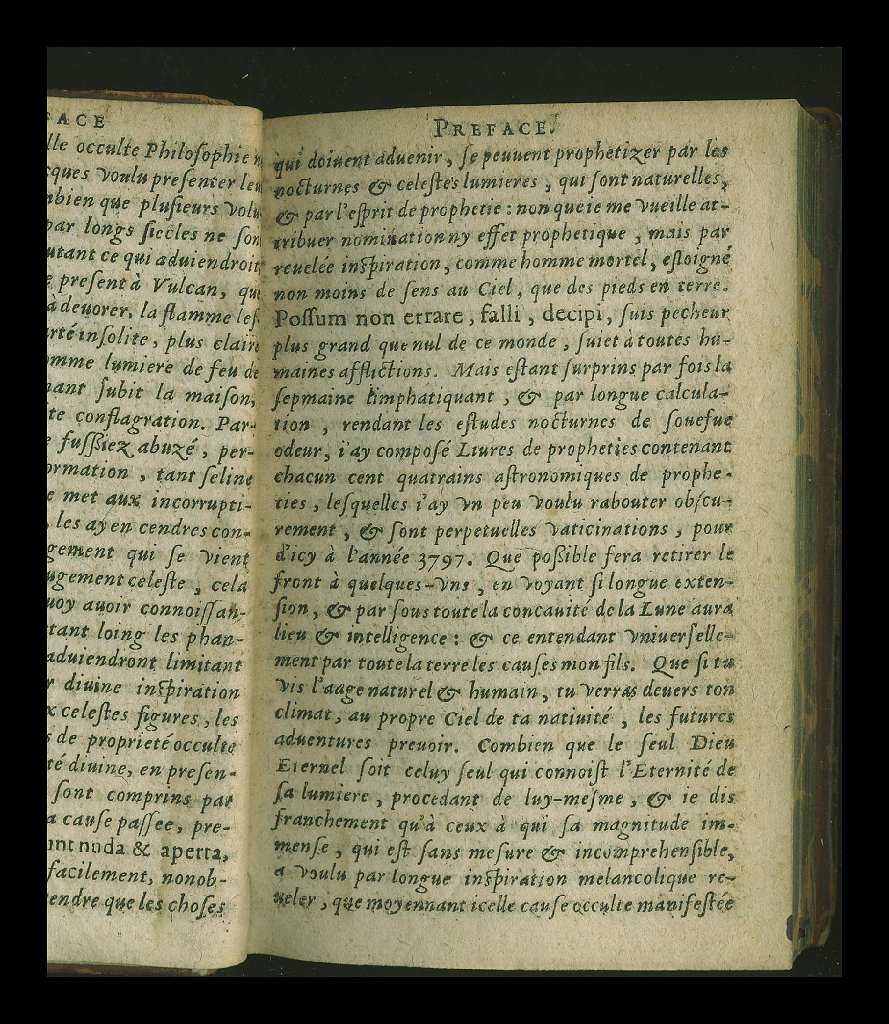 ACE
lle occulte Philosophie
ques voulu presenter leu
bien que plusieurs volu
par longs siecles ne son
utant ce qui aduiendroit,
present à Vulcan, qu
à deuorer, la flamme les
rté insolite, plus claire
mme lumiere de feu de
nant subit la maison,
te conflagration. Par-
fussiez abuzé, per-
ormation, tant seline
e met aux incorrupti-
, les ay en cendres con-
gement qui se vient
ugement celeste, cela
uoy auoir connoissan-
tant loing les phan-
aduiendront limitant
r diuine inspiration
x celestes figures, les
s de proprieté occulte
té diuine, en presen-
sont comprins par
a cause passee, pre-
unt nuda & aperta,
facilement, nonob-
endre que les choses
PREFACE.
qui doiuent aduenir, se peuuent prophetizer par les
nocturnes & celestes lumieres, qui sont naturelles,
& par l'esprit de prophetie : non que ie me vueille at-
tribuer nomination ny effet prophetique, mais par
reuelée inspiration, comme homme mortel, esloigné
non moins de sens au Ciel, que des pieds en terre.
Possum non errare, falli, decipi, suis pecheur
plus grand que nul de ce monde, suiet à toutes hu-
maines afflictions. Mais estant surprins par fois la
sepmaine limphatiquant, & par longue calcula-
tion, rendant les estudes nocturnes de souefue
odeur, i'ay composé Liures de propheties contenant
chacun cent quatrains astronomiques de prophe-
ties, lesquelles i'ay vn peu voulu rabouter obscu-
rement, & sont perpetuelles vaticinations, pour
d'icy à l'année 3797. Que possible fera retirer le
front à quelques-vns, en voyant si longue exten-
sion, & par sous toute la concauité de la Lune aura
lieu & intelligence : & ce entendant vniuerselle-
ment par toute la terre les causes mon fils. Que si tu
vis l'aage naturel & humain, tu verras deuers ton
climat, au propre Ciel de ta natiuité, les futures
aduentures preuoir. Combien que le seul Dieu
Eternel soit celuy seul qui connoist l'Eternité de
sa lumiere, procedant de luy-mesme, & ie dis
franchement qu'à ceux à qui sa magnitude im-
mense, qui est sans mesure & incomprehensible,
a voulu par longue inspiration melancolique re-
ueler, que moyennant icelle cause occulte manifestée